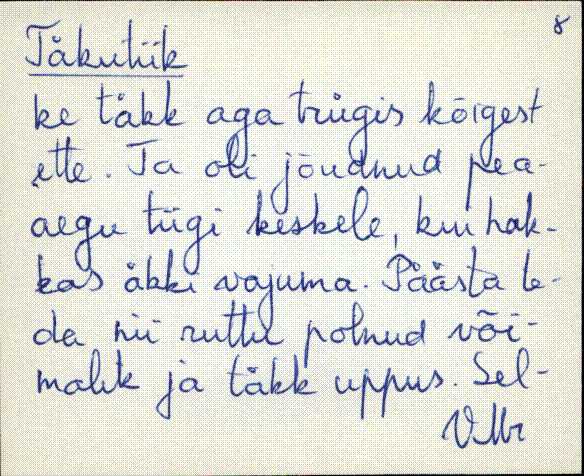 8
Täkutiik
ke täkk aga trügis kõigest
ette. Ta oli jõudnud pea-
aegu tiigi keskele, kui hak-
kas äkki vajuma. Päästa te-
da nii ruttu polnud või-
malik ja täkk uppus. Sel-